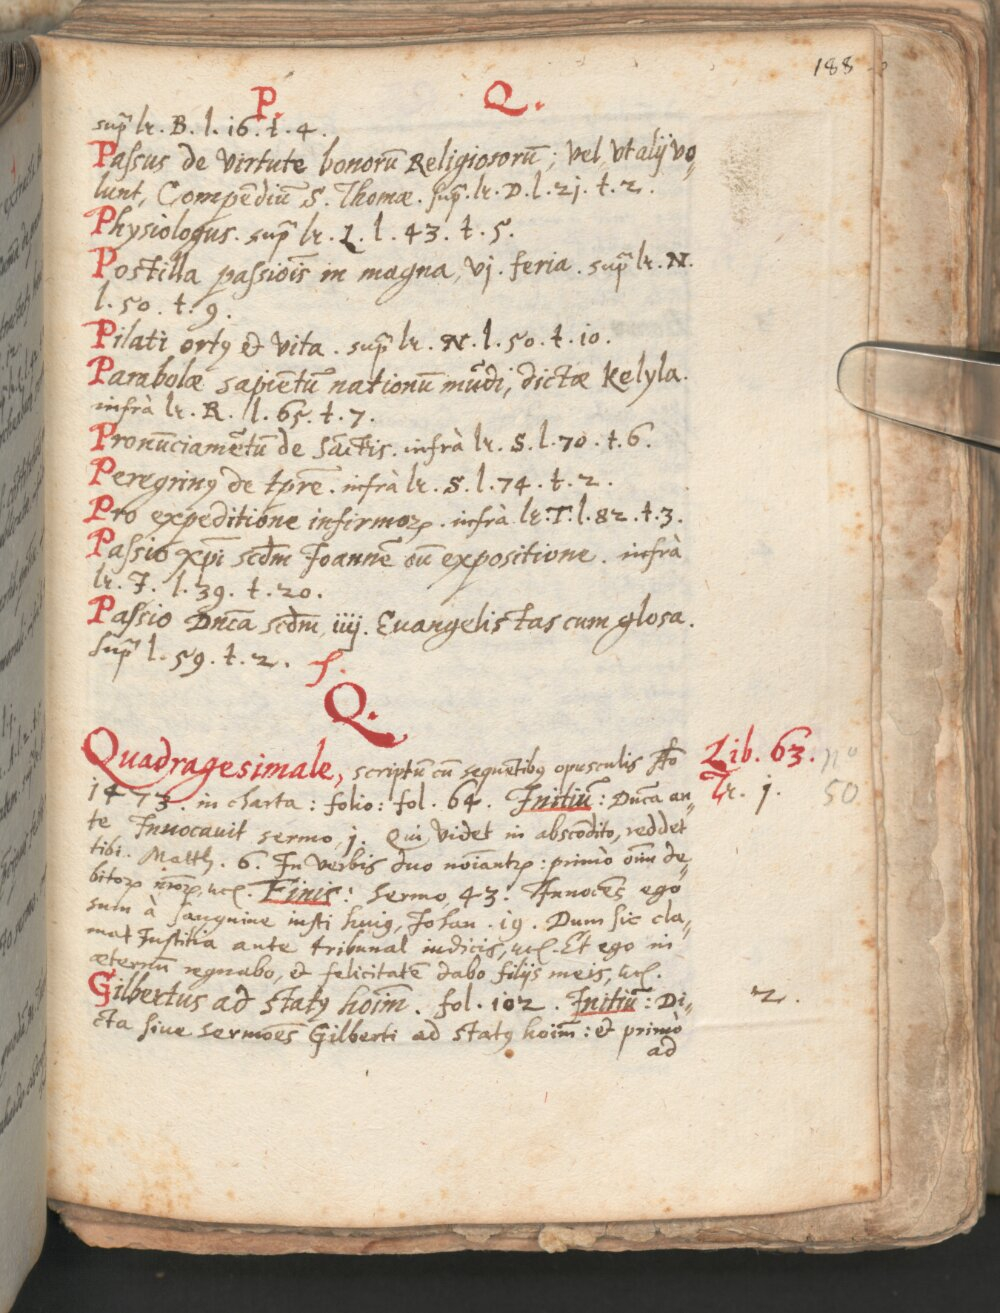 188
P. Q.
sup̃ lr. B. l. 16. t. 4.
Passus de virtute bonorũ Religiosorũ; vel, vt alij vo⸗
lunt, Compẽdiũ S. Thomæ. sup̃. lr. D. l. 21. t. 2.
Physiologus. sup̃ lr. L. l. 43. t. 5.
Postilla passiois̃ in magna, vj. feria. sup̃ lr. N.
l. 50. t. 9.
Pilati ortꝰ & vita. sup̃ lr. N. l. 50. t. 10.
Parabolæ sapiẽtũ nationũ mũdi, dictæ Kelyla.
infrà lr. R. l. 65. t. 7.
Pronũciamẽtũ de Sãctis. infrà lr. S. l. 70. t. 6.
Peregrinꝰ de tp̃re. infrà lr. S. l. 74. t. 2.
Pro expeditione infirmoꝝ. infrà lr. T. l. 82. t. 3.
Passio xp̃i scd̃m Joannẽ cũ expositione. infrà
lr. J. l. 39. t. 20.
Passio Dñca scd̃m iiij. Euangelistas cum glosa.
sup̃ l. 59. t. 2.
Q.
Quadragesimale, scriptũ cũ sequẽtibꝰ opusculis Aõ Lib. 63. nº
1473. in charta: folio: fol. 64. Initiũ: Dñca an⸗ Tr. j. 50
te Inuocauit sermo, j. Qui videt in abscõdito, reddet
tibi. Matth. 6. In verbis duo noĩantꝝ: primò oĩm de⸗
bitoꝝ nr̃oꝝ, &c. Finis: sermo, 43. Innocẽs ego
sum à sanguine iusti huiꝰ, Johan. 19. Dum sic cla⸗
mat Iustitia ante tribunal iudicis, &c. Et ego in
æternũ regnabo, & felicitatẽ dabo filijs meis, &c.
Gilbertus ad statꝰ hoĩm. fol. 102. Initiũ: Di⸗ 2.
cta siue sermoẽs Gilberti ad statꝰ hoĩm: & primò
ad